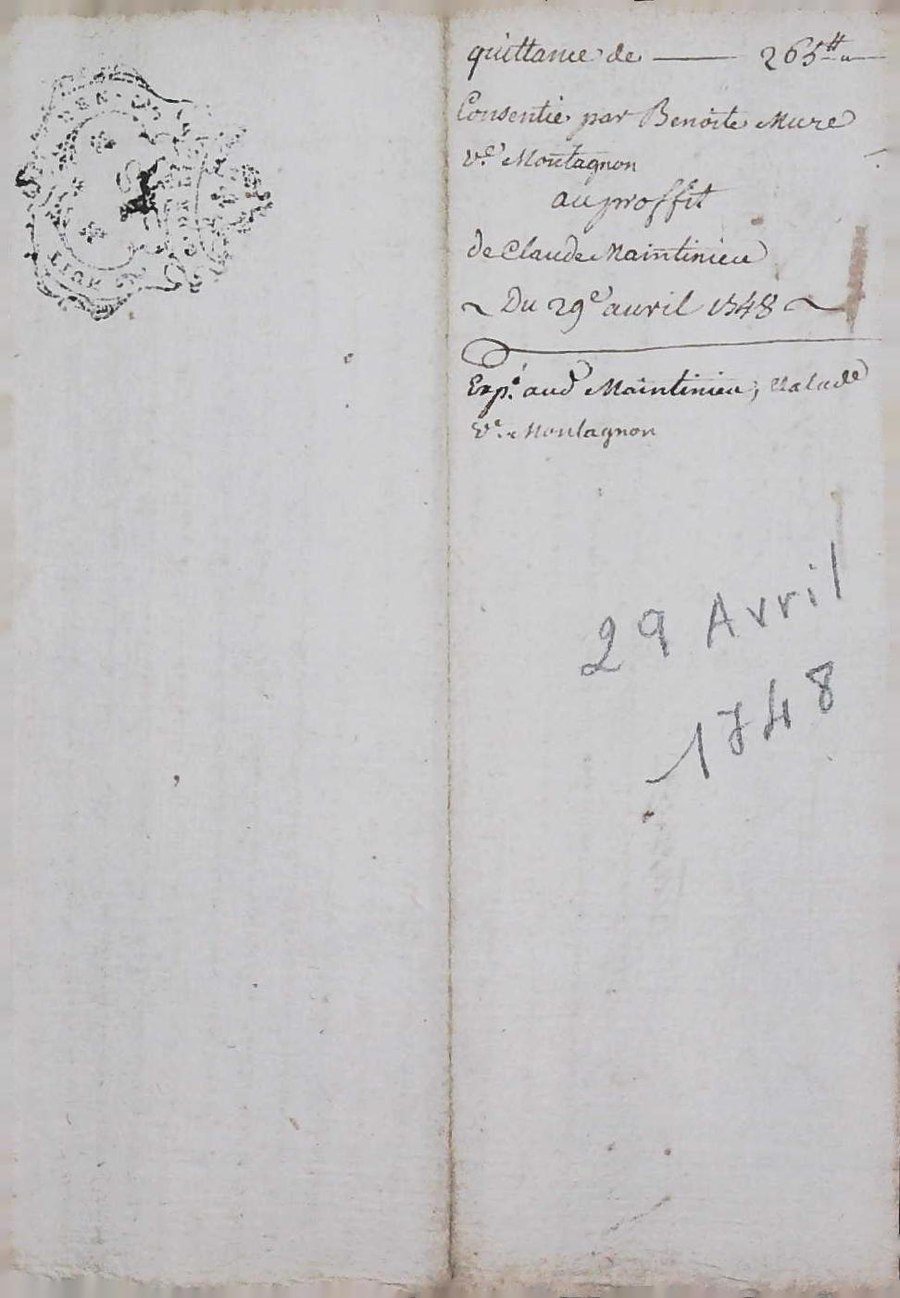 quittance de — 265tt
Consentie par Benoite Mure
Ve Montagnon
au proffit
de Claude Maintinieu
~ Du 29e avril 1748 ~
Expé. aud Maintinieu; et alade
Ve. Montagnon
29 Avril
1748